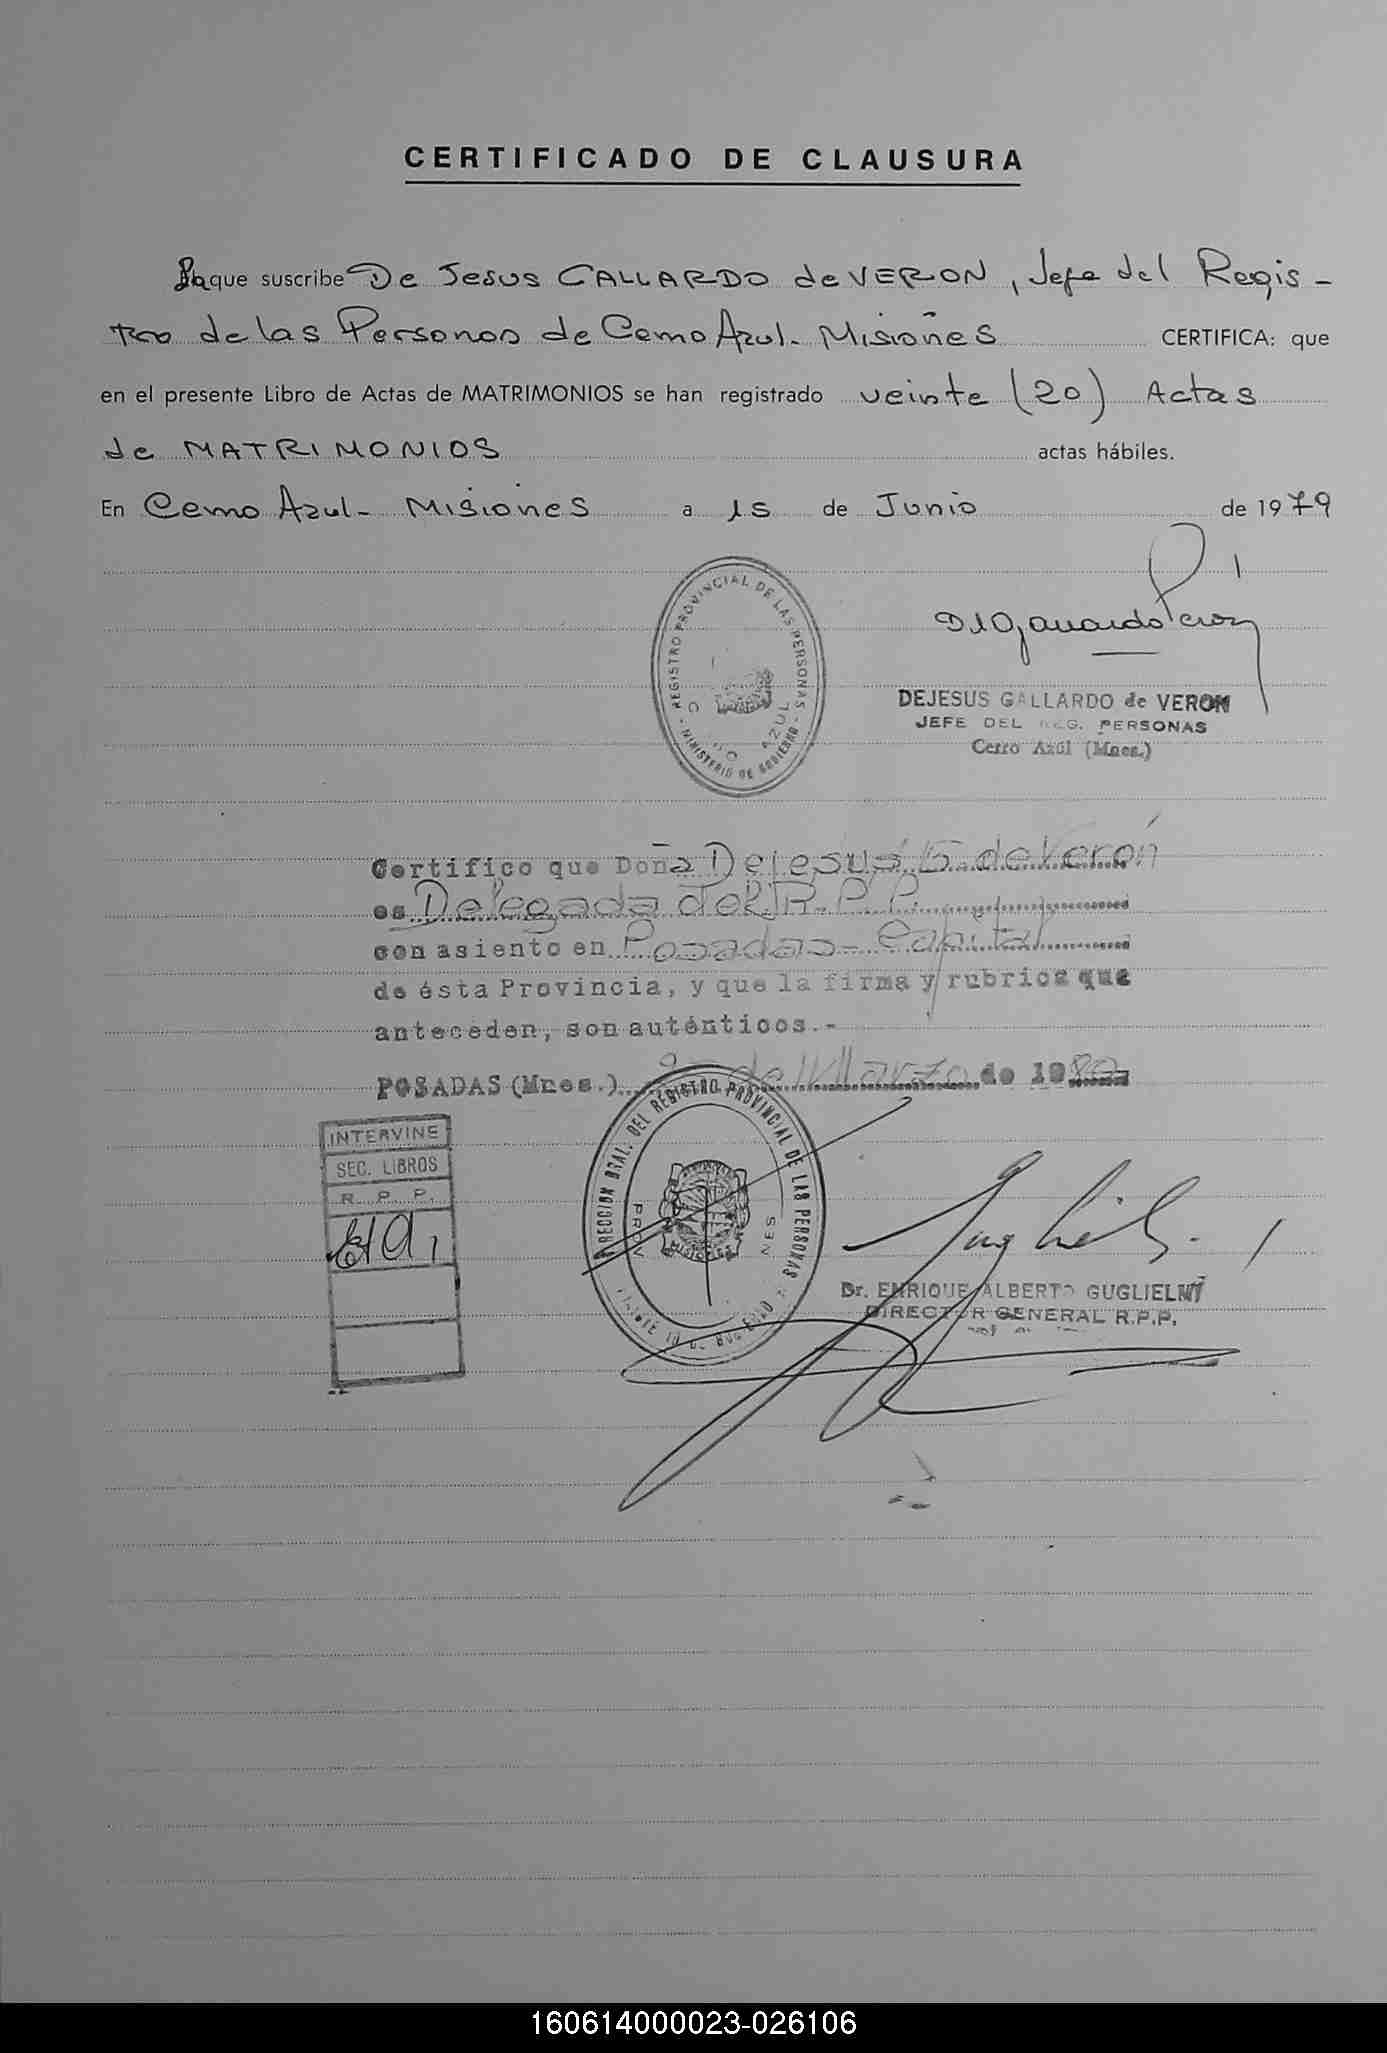 CERTIFICADO DE CLAUSURA
La que suscribe De Jesus GALLARDO de VERON, Jefe del Regis-
tro de las Personas de Cerro Azul - Misiones CERTIFICA: que
en el presente Libro de Actas de MATRIMONIOS se han registrado veinte (20) Actas
de MATRIMONIOS actas hábiles.
En Cerro Azul - Misiones a 15 de Junio de 1979
REGISTRO PROVINCIAL DE LAS PERSONAS
AZUL
- MINISTERIO DE GOBIERNO -
DEJESUS GALLARDO de VERON
JEFE DEL REG. PERSONAS
Cerro Azul (Mnes.)
Certifico que Doña Dejesus G. de Verón
es Delegada del R.P.P.
con asiento en Posadas - Capital
de ésta Provincia, y que la firma y rubrica que
anteceden, son auténticos.-
POSADAS (Mnes.) de Marzo de 1980
DIRECCION GRAL. DEL REGISTRO PROVINCIAL DE LAS PERSONAS
INTERVINE
SEC. LIBROS
R. P. P.
Dr. ENRIQUE ALBERTO GUGLIELMI
DIRECTOR GENERAL R.P.P.
160614000023-026106